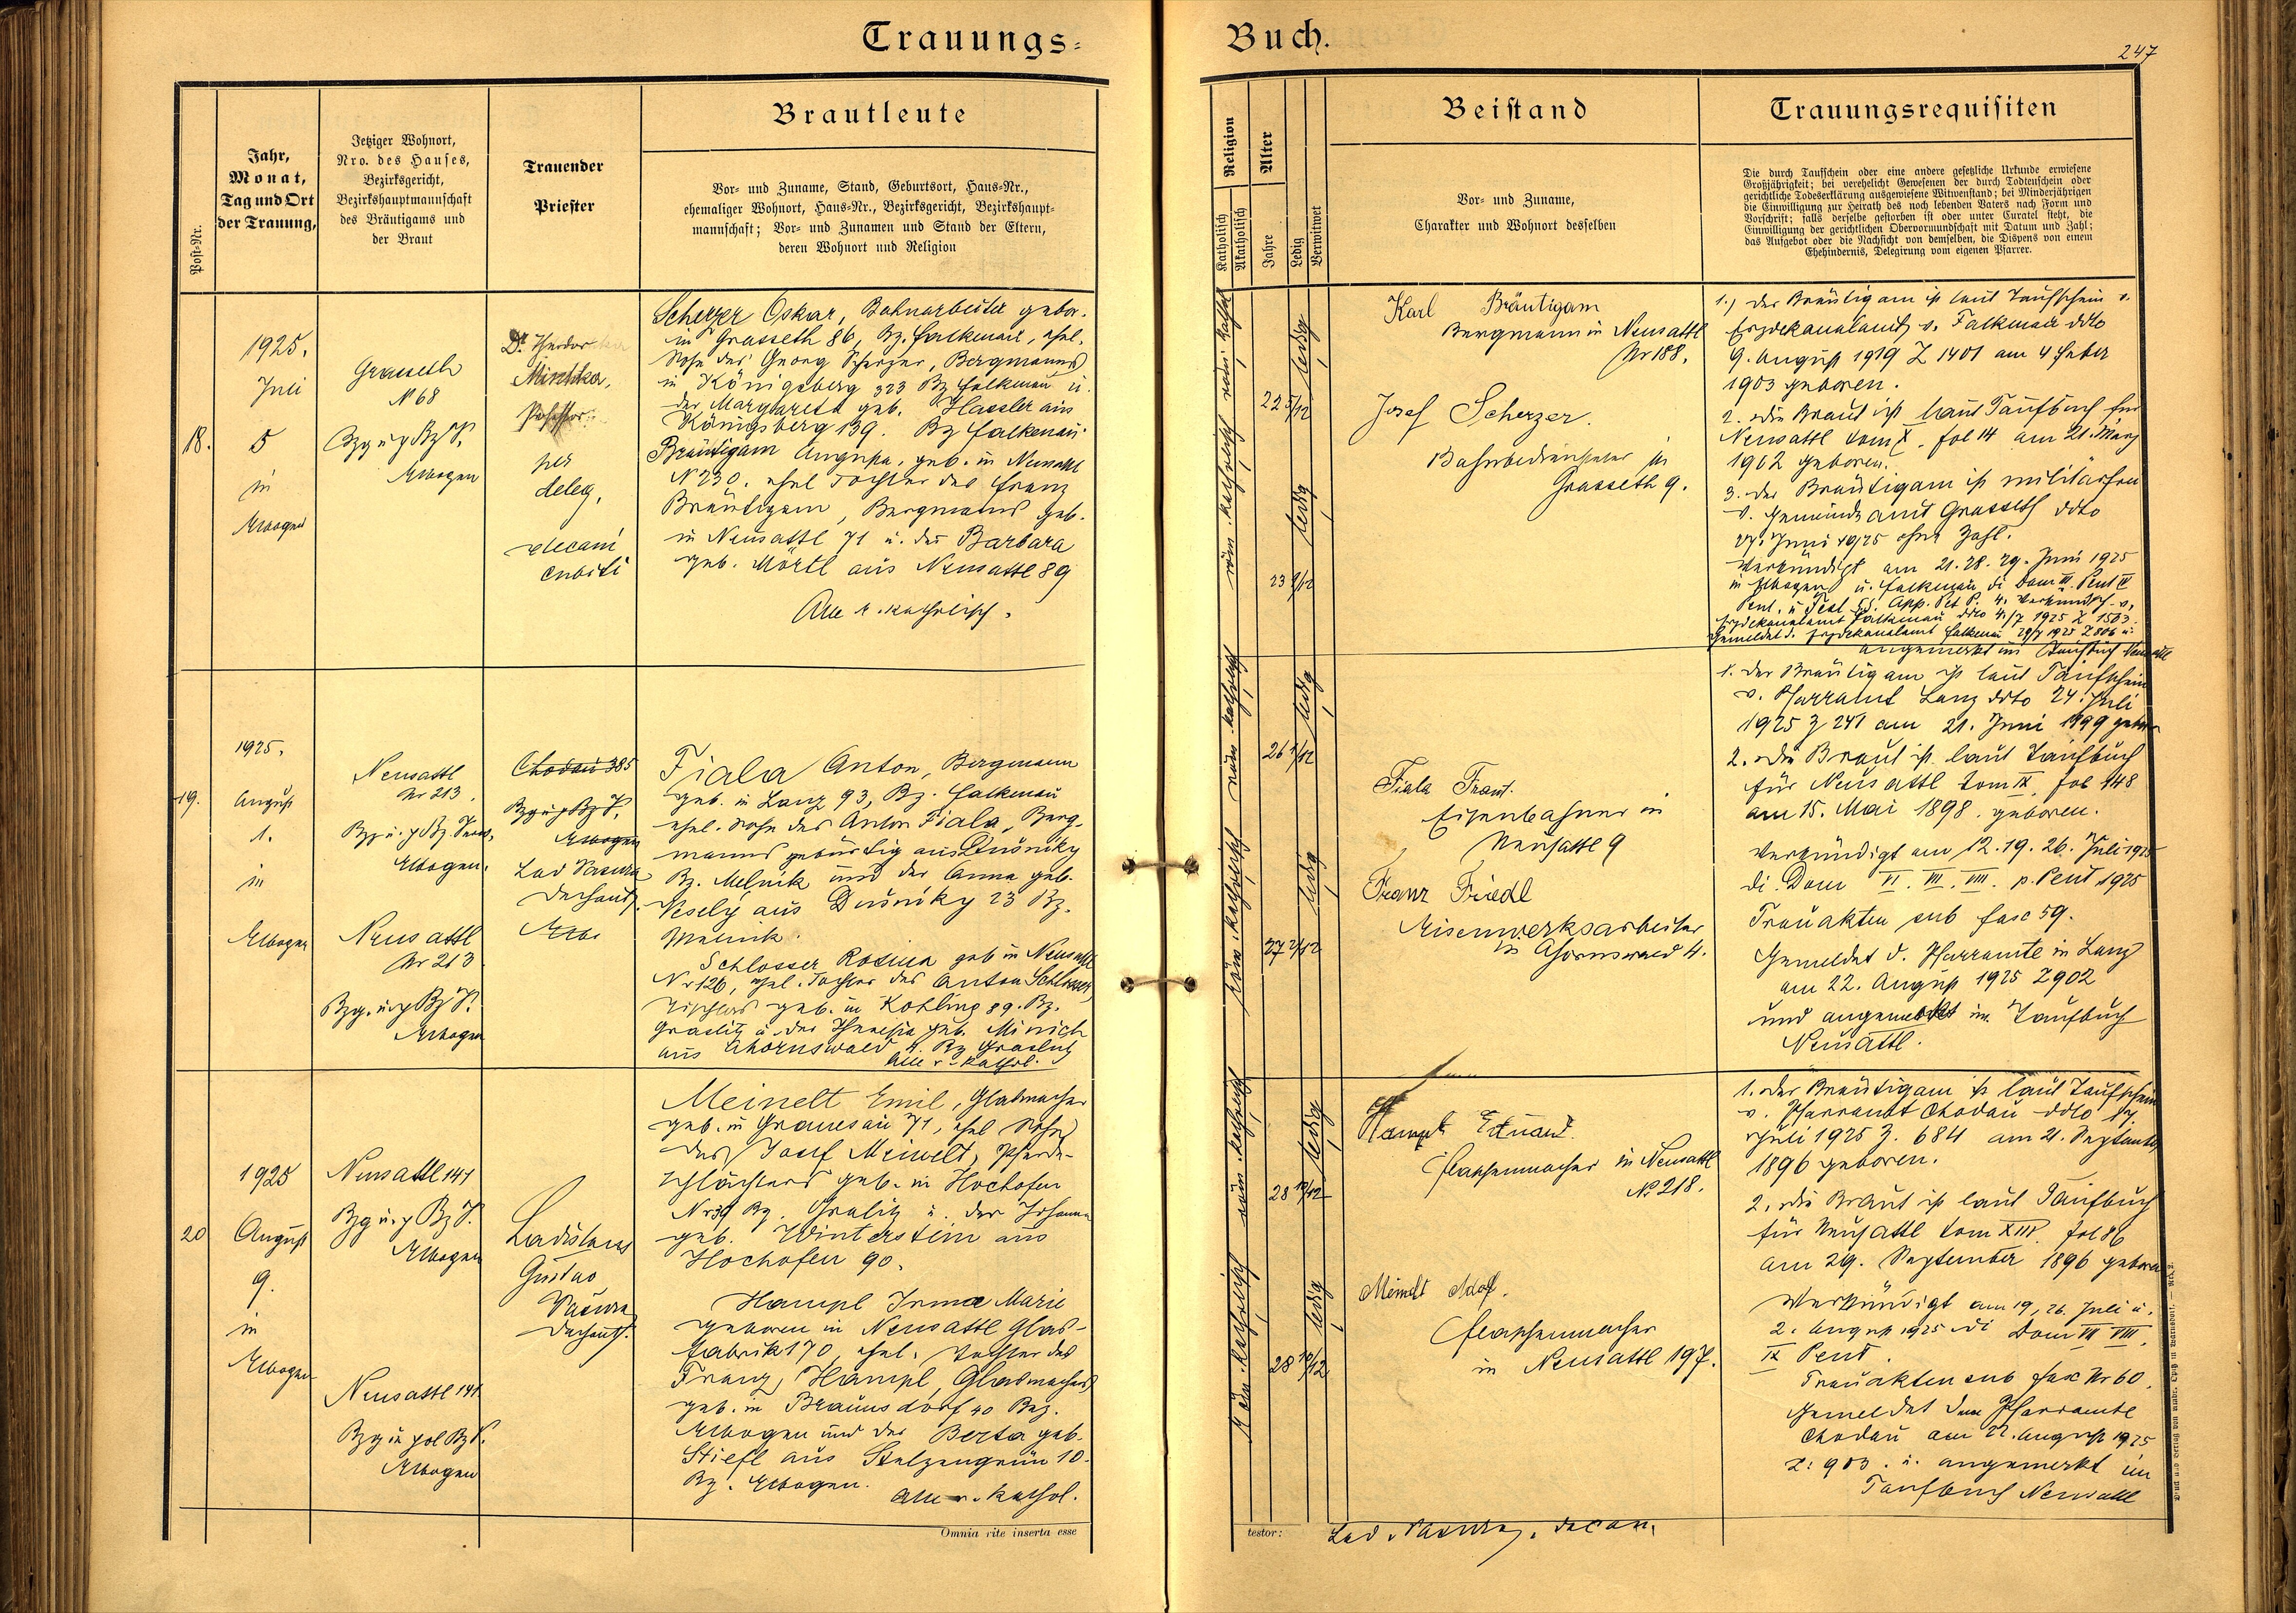 Trauungs=
Buch.
247
Post-Nr.
Jahr,
Monat,
Tag und Ort
der Trauung,
Jetziger Wohnort,
Nro. des Hauses,
Bezirksgericht,
Bezirkshauptmannschaft
des Bräutigams und
der Braut
Trauender
Priester
Brautleute
Vor- und Zuname, Stand, Geburtsort, Haus-Nr.,
ehemaliger Wohnort, Haus-Nr., Bezirksgericht, Bezirkshaupt-
mannschaft; Vor- und Zunamen und Stand der Eltern,
deren Wohnort und Religion
Religion
Katholisch
Akatholisch
Alter
Jahre
Ledig
Verwitwet
Beistand
Vor- und Zuname,
Charakter und Wohnort desselben
Trauungsrequisiten
Die durch Taufschein oder eine andere gesetzliche Urkunde erwiesene
Großjährigkeit; bei verehelicht Gewesenen der durch Todtenschein oder
gerichtliche Todeserklärung ausgewiesene Witwenstand; bei Minderjährigen
die Einwilligung zur Heirath des noch lebenden Vaters nach Form und
Vorschrift; falls derselbe gestorben ist oder unter Curatel steht, die
Einwilligung der gerichtlichen Obervormundschaft mit Datum und Zahl;
das Aufgebot oder die Nachsicht von demselben, die Dispens von einem
Ehehindernis, Delegirung vom eigenen Pfarrer.
18.
1925.
Juli
5
in
Elbogen
Grasseth
N 68
Bzg u p Bz V.
Elbogen
Dr. Theodor
Mischka,
Professor
per
deleg.
decani
cubiti
Scherzer Oskar, Bahnarbeiter gebor.
in Grasseth 86, Bz. Falkenau, ehel.
Sohn des Georg Scherzer, Bergmanns
in Königsberg 323 Bz Falkenau u.
der Margareta geb. Hassler aus
Königsberg 139. Bz Falkenau.
Bräutigam Augusta, geb. in Neusattl
N 230. ehel Tochter des Franz
Bräutigam, Bergmanns geb.
in Neusattl 71 u. der Barbara
geb. Mörtl aus Neusattl 89
Alle r. katholisch.
röm. katholisch röm. kathol
22 5/12
ledig
23 3/12
ledig
Karl Bräutigam
Bergmann in Neusattl
Nr 188.
Josef Scherzer.
Bahnbediensteter in
Grasseth 9.
1.) Der Bräutigam ist laut Taufschein v.
Erzdekanalamt v. Falkenau ddto
9. August 1919 Z 1401 am 4 Feber
1903 geboren.
2. Die Braut ist laut Taufbuch für
Neusattl tom X. fol 14 am 21. März
1902 geboren.
3. Der Bräutigam ist militärfrei
v. Gemeindeamt Grasseth ddto
27. Juni 1925 ohne Zahl.
Verkündigt am 21. 28. 29. Juni 1925
in Elbogen u. Falkenau di Dom III. Pent IV
Pent. u Fest SS. App. Pet P. 4. Verkündsch. v.
Erzdekanalamt Falkenau ddto 4./7 1925 Z 1503
Gemeldet d. Erzdekanalamt Falkenau 29/7 1925 Z 806 u.
angemerkt im Taufbuch Neusattl
19.
1925.
August
1.
in
Elbogen
Neusattl
Nr 213.
Elbogen.
Neusattl
Nr 213
Bzg. u p Bz V.
Elbogen
Chodau 385
Bzg u p Bz V.
Elbogen
Lad Pasura
Dechant
Fiala Anton, Bergmann
geb. in Lanz 93, Bz. Falkenau
ehel. Sohn des Anton Fiala, Berg-
manns gebürtig aus Dušniky
Bz. Melnik und der Anna geb.
Vesely aus Dušniky 23 Bz.
Melnik.
Schlosser Rosina geb in Neusattl
Nr 126, ehel. Tochter des Anton Schlosser,
Tischlers geb. in Kohling 89. Bz.
Graslitz u. der Theresia geb. Minich
aus Ahornswald 4. Bz Graslitz
Alle r. kathol.
röm. katholisch röm. katholisch
26 1/12
ledig
27 2/12
ledig
Fiala Franz.
Eisenbahner in
Neusattl 9
Franz Friedl
Eisenwerksarbeiter
in Ahornswald 4.
1. Der Bräutigam ist laut Taufschein
v. Pfarramt Lanz ddto 24. Juli
1925 Z 241 am 21. Juni 1899 geboren
2. Die Braut ist laut Taufbuch
für Neusattl tom IX, fol 148
am 15. Mai 1898. geboren.
Verkündigt am 12. 19. 26. Juli 1925
di Dom VI. VII. VIII. p. Pent 1925
Trauakten sub fasc 59.
Gemeldet d. Pfarramte in Lanz
am 22. August 1925 Z 902
und angemerkt im Taufbuch
Neusattl.
20
1925
August
9.
in
Elbogen
Neusattl 141
Bzg u. p Bz V.
Elbogen
Neusattl 141
Bzg u pol Bz V.
Elbogen
Ladislaus
Gustav
Pasura
Dechant.
Meinelt Emil, Glasmacher
geb. in Granesau 71, ehel Sohn
des Josef Meinelt, Pferde-
schlächters geb. in Hochofen
Nr 39 Bz. Graslitz u. der Johanna
geb. Winterstein aus
Hochofen 90.
Hampl Irma Marie
geboren in Neusattl Glas-
fabrik 170, ehel. Tochter des
Franz Hampl, Glasmachers
geb. in Braunsdorf 40 Bez.
Elbogen und der Berta geb.
Stiefl aus Stelzengrün 10.
Bz. Elbogen.
Alle r. kathol.
röm. katholisch röm. katholisch
28 10/12
ledig
28 10/12
ledig
Hampl Eduard.
Flaschenmacher in Neusattl
N. 218.
Meinelt Adolf.
Flaschenmacher
in Neusattl 197.
1. Der Bräutigam ist laut Taufschein
v. Pfarramt Chodau ddto 17
Juli 1925 Z. 684 am 21. September
1896 geboren.
2. Die Braut ist laut Taufbuch
für Neusattl tom XIII. fol 86
am 29. September 1896 geboren
Verkündigt am 19, 26. Juli u.
2. August 1925 di Dom VII VIII.
IX Pent.
Trauakten sub fasc Nr 60.
Gemeldet dem Pfarramte
Chodau am 22. August 1925
Z: 903. u. angemerkt im
Taufbuch Neusattl
Omnia rite inserta esse
testor:
Lad. Pasura, decan.